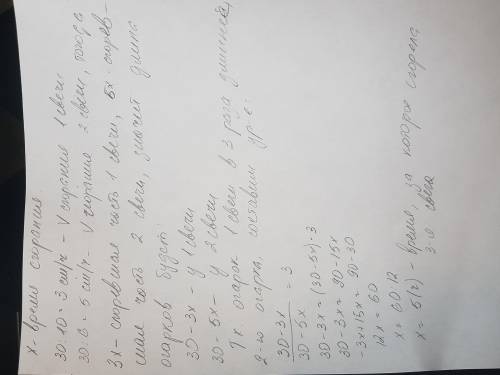 x - время сгорания
30:10 = 3 см/ч - V сгорания 1 свечи
30:6 = 5 см/ч - V сгорания 2 свечи, тогда
3x - сгоревшая часть 1 свечи, 5x - сгорев-
шая часть 2 свечи, значит длина
огарков будет
30 - 3x - у 1 свечи
30 - 5x - у 2 свечи
Т.к. огарок 1 свечи в 3 раза длиннее,
2-го огарка, составим ур-е:
30 - 3x / 30 - 5x = 3
30 - 3x = (30 - 5x) · 3
30 - 3x = 90 - 15x
-3x + 15x = 90 - 30
12x = 60
x = 60:12
x = 5 (ч) - время, за которое сгорела
3-я свеча